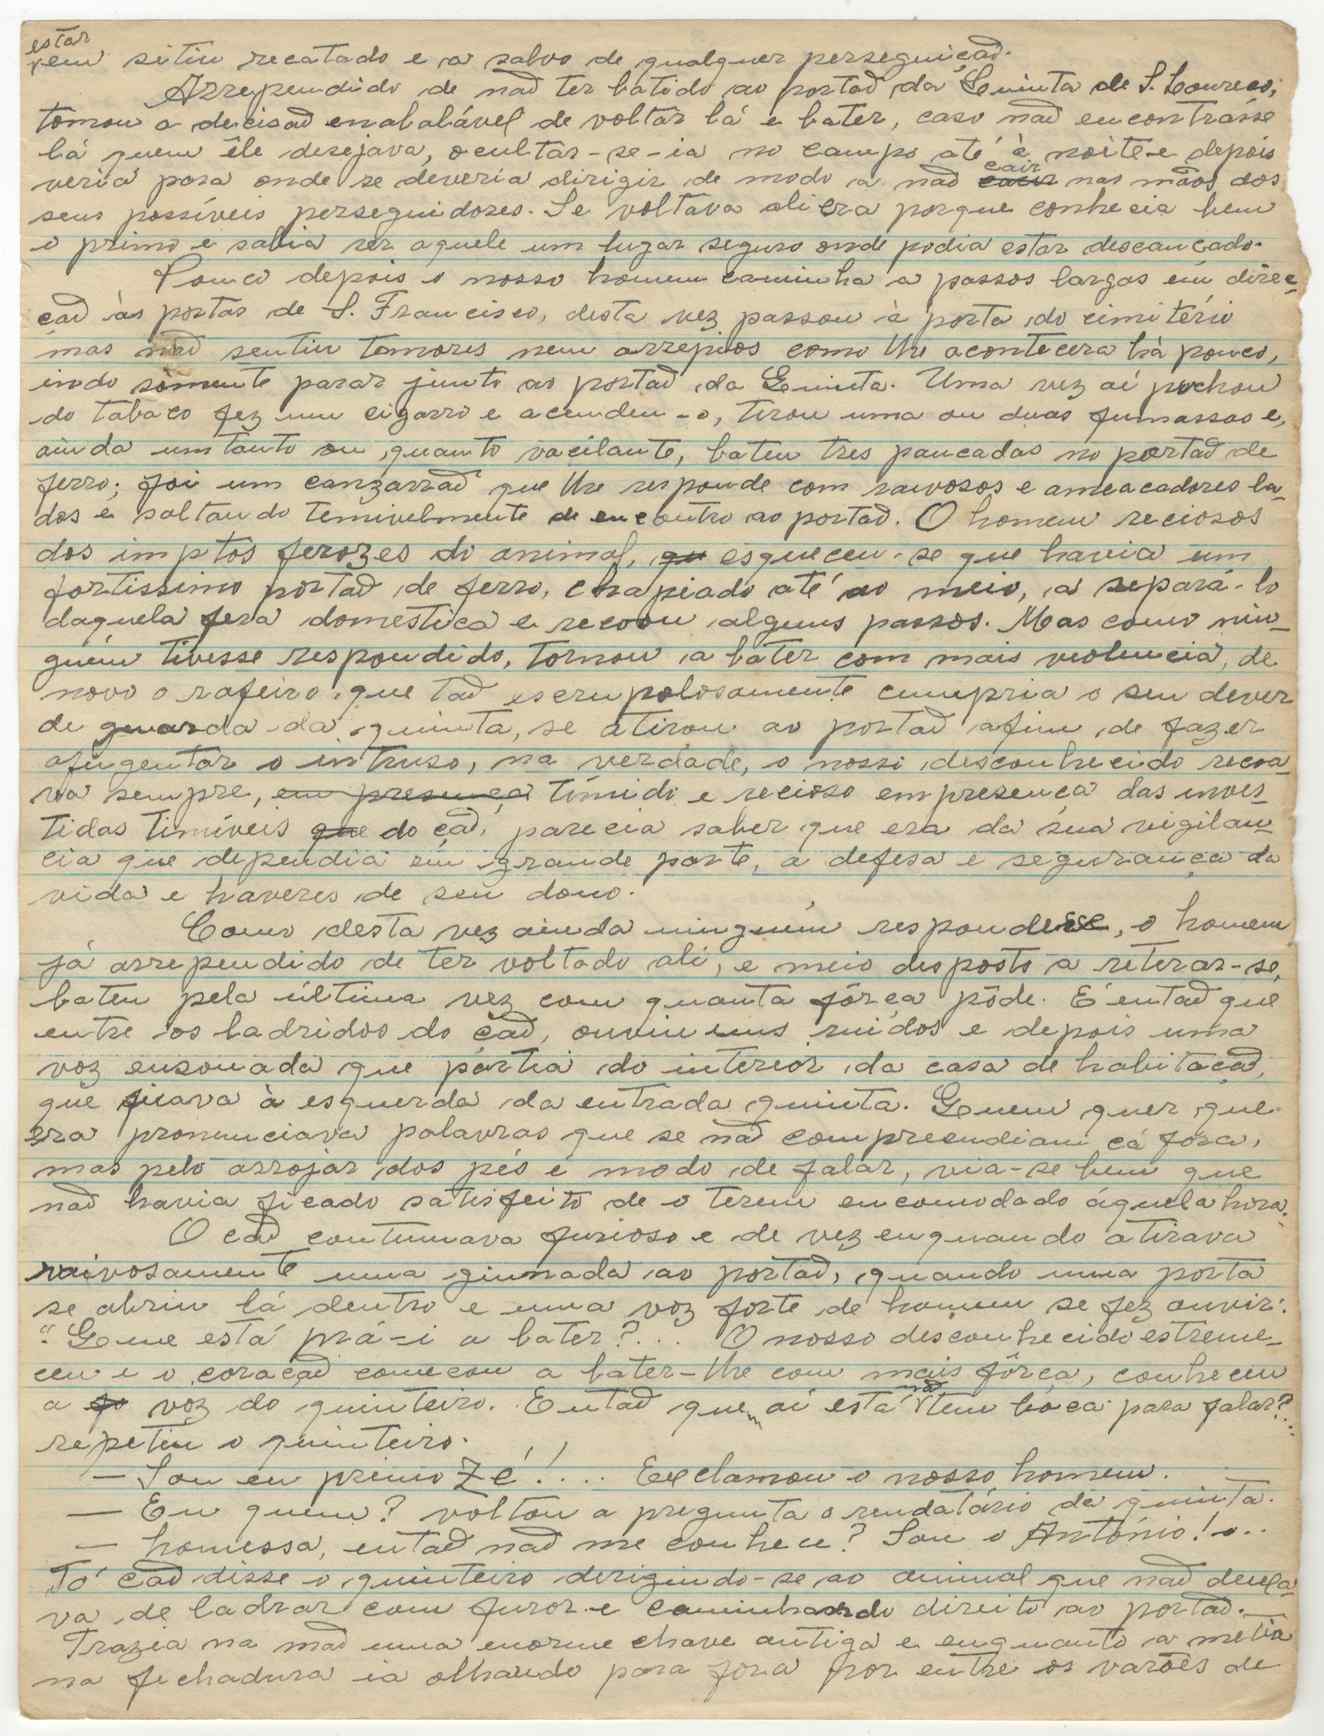 estar
em sitiu recatado e a salvo de qualquer perseguição.
Arrependido de não ter batido ao portão da Quinta de S. Loureço,
tomou a decisão enabalável de voltar lá e bater, caso não encontrásse
lá quem êle desejava, ocultar-se-ia no campo até à noite e depois
cair
veria para onde se deveria dirigir de modo a não nas mãos dos
seus possíveis perseguidores. Se voltava ali era porque conhecia bem
o primo e sabia ser aquele um lugar seguro onde podia estar descançado.
Pouco depois o nosso homem caminha a passos largos em direc-
ção às portas de S. Francisco, desta vez passou à porta do cimitério
mas não sentiu temores nem arrepios como lhe acontecera há pouco,
indo sòmente parar junto ao portão da Quinta. Uma vez aí puchou
do tabaco fez um cigarro e acendeu-o, tirou uma ou duas fumassas e,
ainda um tanto ou quanto vacilante, bateu tres pancadas no portão de
ferro; foi um canzarrão que lhe responde com raivosos e ameacadores la-
dos e saltando temivelmente de encontro ao portão. O homem reciosos
dos imptos ferozes do animal, qu esqueceu-se que havia um
fortissimo portão de ferro, chapiado até ao meio, a separá-lo
daquela fera domestica e recoou alguns passos. Mas como nin-
guém tivesse respondido, tornou a bater com mais violencia, de
novo o rafeiro que tão escrupolosamente cumpria o seu dever
de guarda da quinta, se atirou ao portão afim de fazer
afugentar o intruso, na verdade, o nosso desconhecido recoa-
va sempre, em presença tímido e recioso em presença das inves-
tidas timíveis que do cão, parecia saber que era da sua vigilan-
cia que dependia em grande parte, a defesa e segurança da
vida e haveres de seu dono.
Como desta vez ainda ninguém respondesse, o homem
já arrependido de ter voltado ali, e meio desposto a reterar-se,
bateu pela última vez com quanta fôrça pôde. É então que
entre os ladridos do cão, ouviu uns ruídos e depois uma
voz ensonada que partia do interior da casa de habitação,
que ficava à esquerda da entrada quinta. Quem quer que
era pronunciava palavras que se não compreendiam cá fora,
mas pelo arrojar dos pés e modo de falar, via-se bem que
não havia ficado satisfeito de o terem encomodado áquela hora.
O cão continuava furioso e de vez enquando atirava
raivosamente uma guinada ao portão, quando uma porta
se abriu lá dentro e uma voz forte de homem se fez ouvir:
"Quem está prá-i a bater?... O nosso desconhecido estreme-
ceu e o coração começou a bater-lhe com mais fôrça, conheceu
não
a fo voz do quinteiro. Então quem aí está tem bôca para falar?...
repetiu o quinteiro.
— Sou eu primo Zé!.... Exclamou o nosso homem.
— Eu quem? voltou a pregunta o rendatário da quinta.
— homessa, então não me conhece? Sou o António!...
Tó cão disse o quinteiro derigindo-se ao animal que não deixa-
va de ladrar com furor e caminhando direito ao portão.—
Trazia na mão uma enorme chave antiga e enquanto a metia
na fechadura ia olhando para fora por entre os varões de